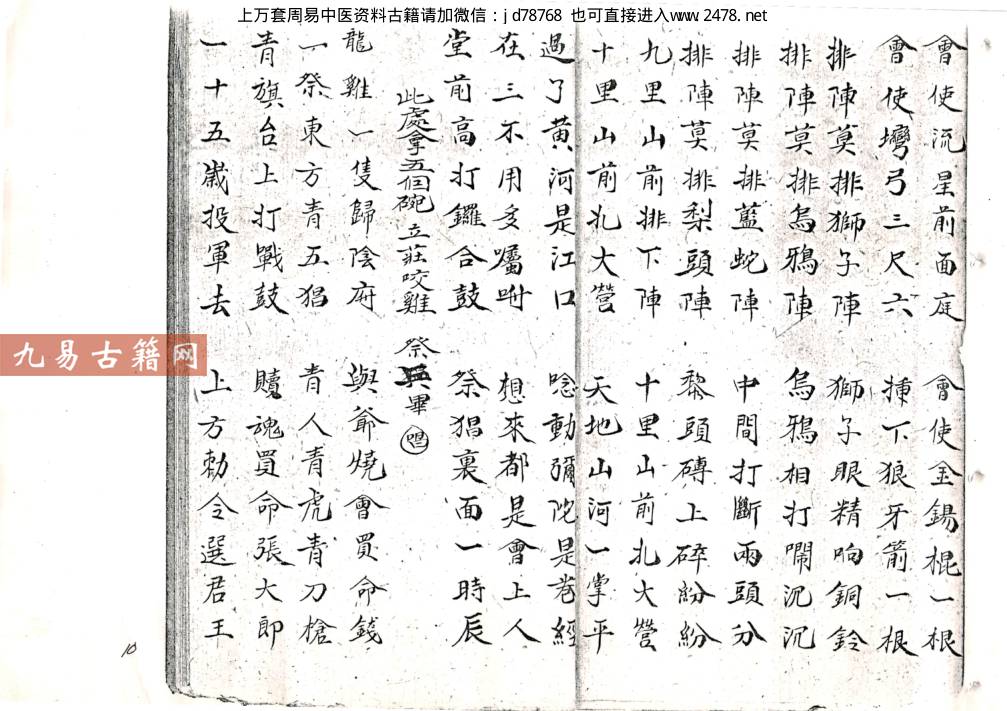 上万套周易中医资料古籍请加微信：jd78768 也可直接进入www.2478.net
會使流星前面庭 會使金錫棍一根
會使彎弓三尺六 插下狼牙箭一根
排陣莫排獅子陣 獅子眼精响銅鈴
排陣莫排烏鴉陣 烏鴉相打鬧沉沉
排陣莫排藍蛇陣 中間打斷兩頭分
排陣莫排梨頭陣 黎頭磚上碎紛紛
九里山前排下陣 十里山前北大營
十里山前扎大營 天地山河一掌平
過了黄河是江口 唸動彌陀是卷經
在三不用多囑咐 想來都是會上人
堂前高打鑼合鼓 祭猖裏面一時辰
此處拿五個碗 立莊咬雞 祭畢 唱
龍雞一隻歸陰府 與爺燒會買命錢
一祭東方青五猖 青人青虎青刀槍
青旗台上打戰鼓 贖魂買命張大郎
一十五歲投軍去 上方勅令選君王
九易古籍网
10